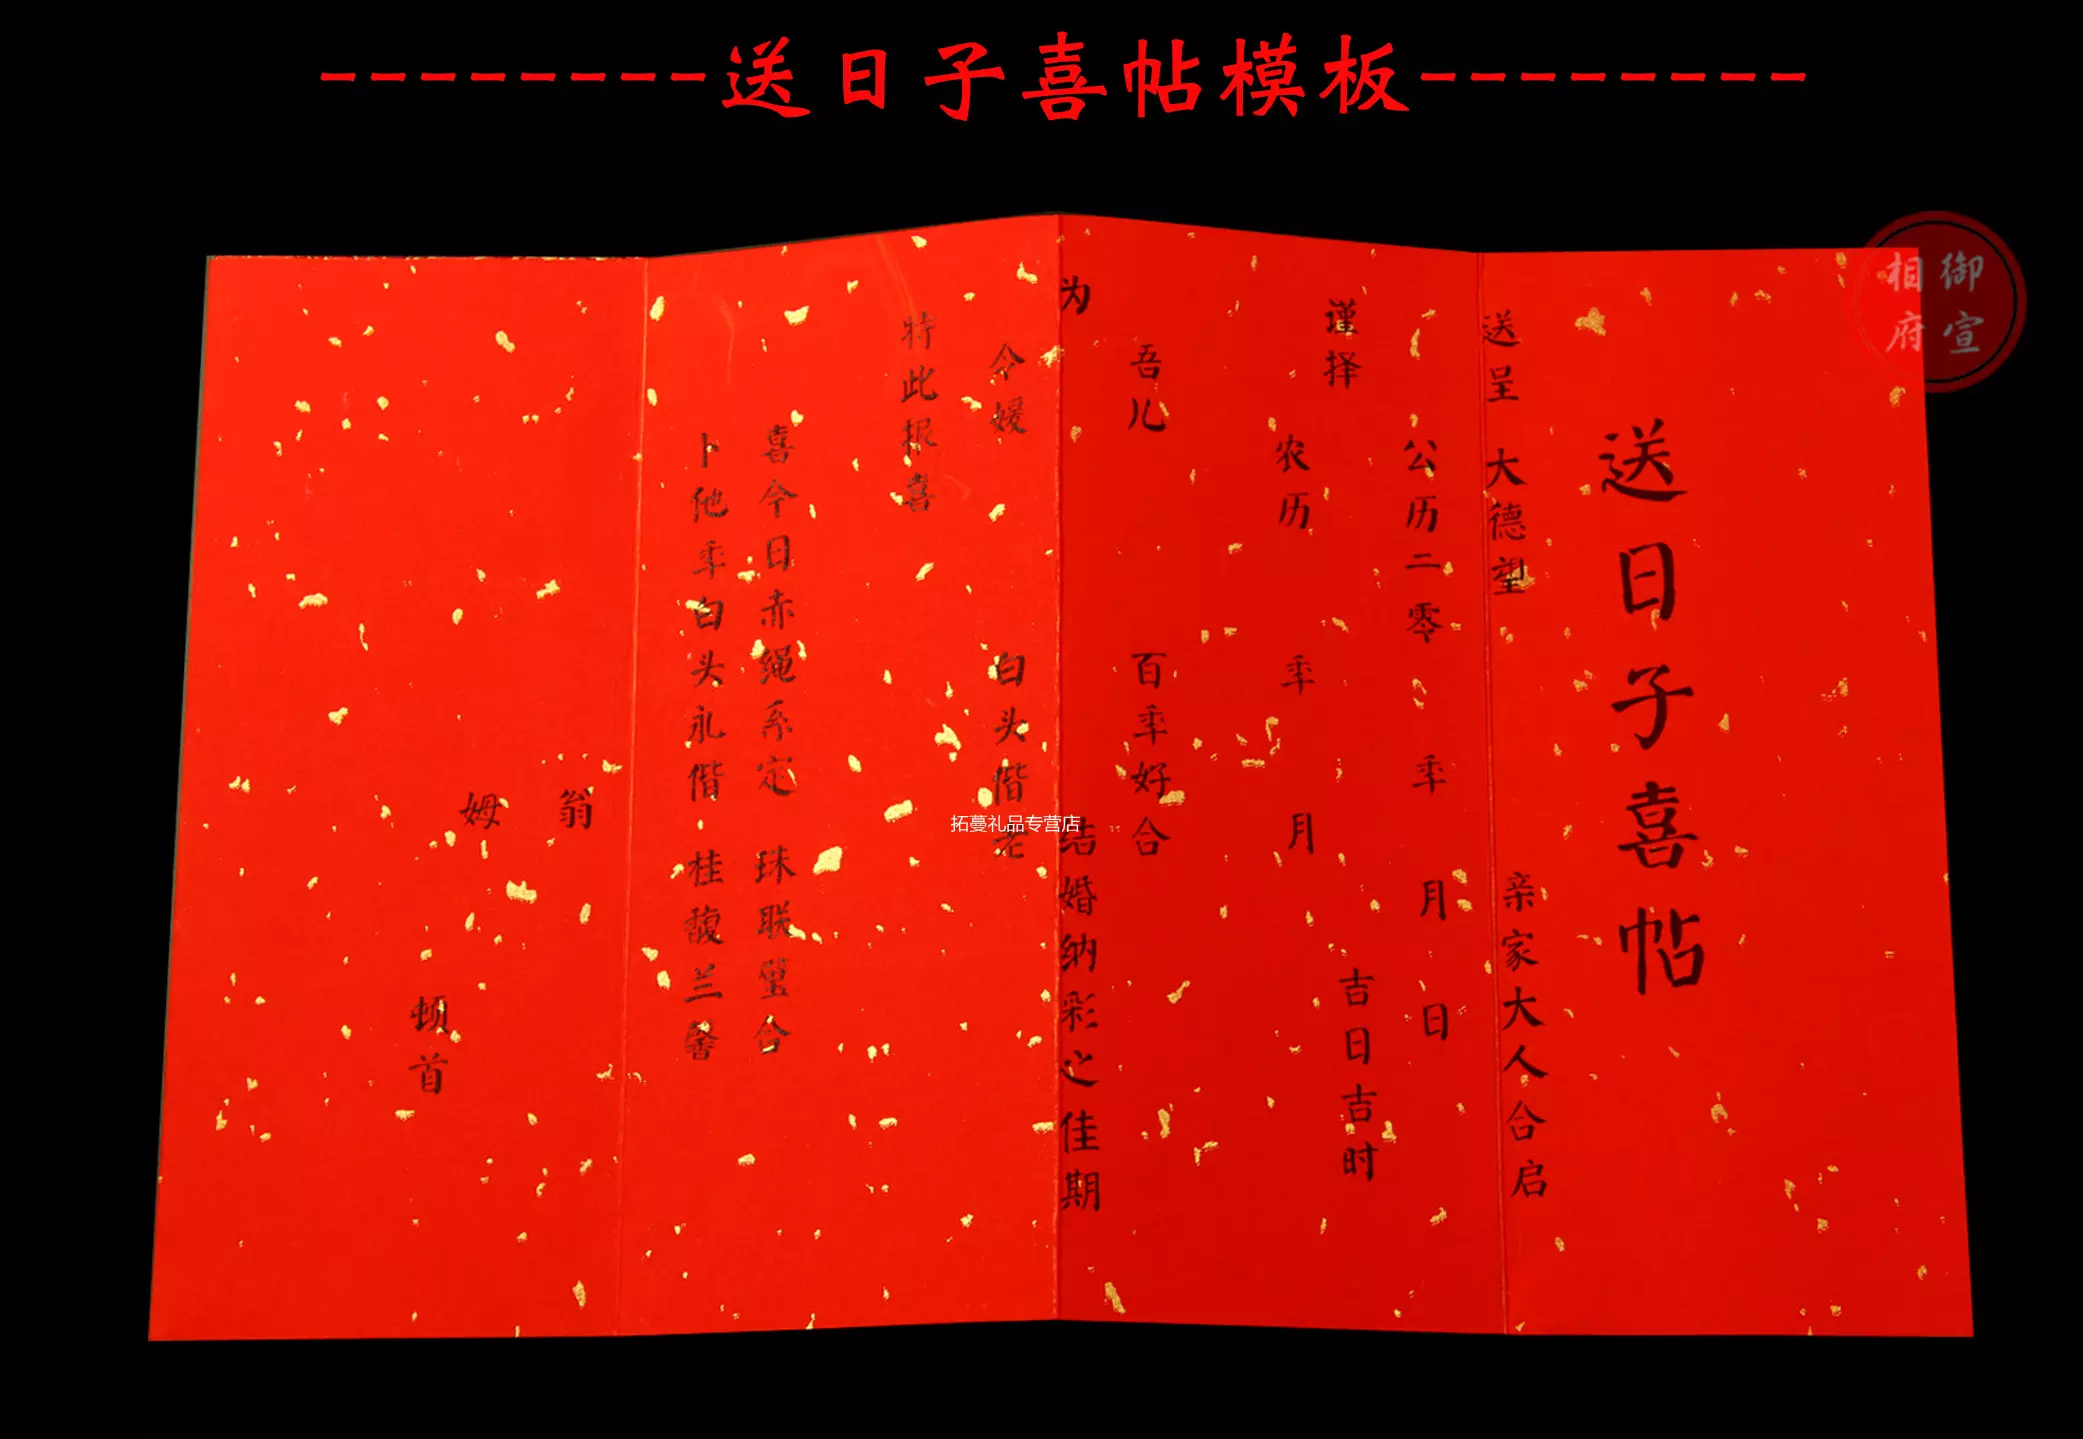 --------送日子喜帖模板--------
御宣
相府
送日子喜帖
送呈 大德望 亲家大人合启
公历二零 年 月 日
谨择 吉日吉时
农历 年 月
吾儿 百年好合
为 结婚纳彩之佳期
令媛 白头偕老
特此报喜
喜今日赤绳系定 珠联璧合
卜他年白头永偕 桂馥兰馨
翁
姆
顿首
拓蔓礼品专营店